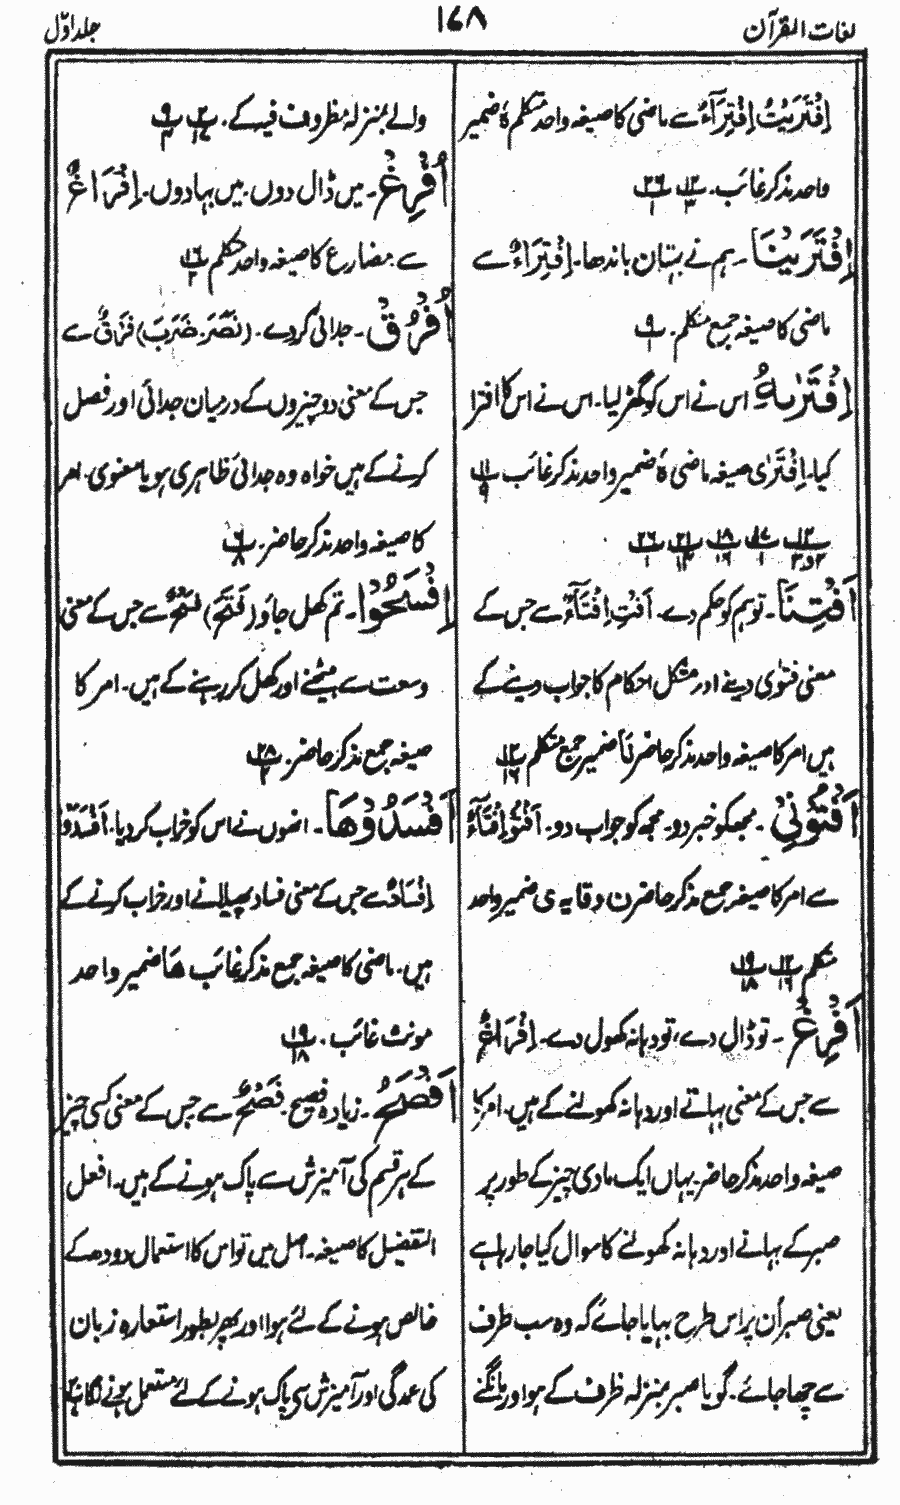 لغات القرآن
۱۶۸
جلد اوّل
اِفْتَرَيْتُ اِفْتِرَاءٌ سے ماضی کا صیغہ واحد متکلم ہٗ ضمیر
واحد مذکر غائب۔ ۱۲/۳ ۲۶/۱
اِفْتَرَيْنَا۔ ہم نے بہتان باندھا۔ اِفْتِرَاءٌ سے
ماضی کا صیغہ جمع متکلم۔ ۹/۱
اِفْتَرٰىهُ اس نے اس کو گھڑ لیا۔ اس نے اس کا افترا
کیا۔ اِفْتَرٰی صیغہ ماضی ہٗ ضمیر واحد مذکر غائب ۱۱/۹
۱۲/۲و۳ ۱۷/۱ ۱۸/۱۶ ۲۱/۱۴ ۲۶/۱
اَفْتِنَا۔ تو ہم کو حکم دے۔ اَفْتِ اِفْتَاءٌ سے جس کے
معنی فتوٰی دینے اور مشکل احکام کا جواب دینے کے
ہیں امر کا صیغہ واحد مذکر حاضر نَا ضمیر جمع متکلم ۱۲/۱۶
اَفْتُوْنِیْ۔ مجھ کو خبر دو۔ مجھ کو جواب دو۔ اَفْتُوْا اِفْتَاءٌ
سے امر کا صیغہ جمع مذکر حاضر ن وقایہ ی ضمیر واحد
متکلم ۱۲/۱۶ ۱۹/۱۸
اَفْرِغْ۔ تو ڈال دے، تو دہانہ کھول دے۔ اِفْرَاغٌ
سے جس کے معنی بہانے اور دہانہ کھولنے کے ہیں۔ امر کا
صیغہ واحد مذکر حاضر۔ یہاں ایک مادی چیز کے طور پر
صبر کے بہانے اور دہانہ کھولنے کا سوال کیا جا رہا ہے
یعنی صبر اُن پر اس طرح بہایا جائے کہ وہ سب طرف
سے چھا جائے۔ گویا صبر بمنزلہ ظرف کے ہو اور مانگنے
والے بمنزلہ مظروف فیہ کے۔ ۲/۱۷ ۹/۴
اُفْرِغْ۔ میں ڈال دوں۔ میں بہا دوں۔ اِفْرَاغٌ
سے۔ مضارع کا صیغہ واحد متکلم ۱۶/۲
اُفْرُقْ۔ جدائی کر دے۔ (نَصَرَ۔ ضَرَبَ) فَرْقٌ سے
جس کے معنی دو چیزوں کے درمیان جدائی اور فصل
کرنے کے ہیں خواہ وہ جدائی ظاہری ہو یا معنوی۔ امر
کا صیغہ واحد مذکر حاضر۔ ۶/۸
اِفْسَحُوْا۔ تم کھل جاؤ (فَتَحَ) فَسْحٌ سے جس کے معنی
وسعت سے بیٹھنے اور کھل کر رہنے کے ہیں۔ امر کا
صیغہ جمع مذکر حاضر۔ ۲۸/۲
اَفْسَدُوْهَا۔ انہوں نے اس کو خراب کر دیا۔ اَفْسَدُوْا
اِفْسَادٌ سے جس کے معنی فساد پھیلانے اور خراب کرنے کے
ہیں۔ ماضی کا صیغہ جمع مذکر غائب ھَا ضمیر واحد
مونث غائب۔ ۱۹/۱۸
اَفْصَحُ۔ زیادہ فصیح۔ فَصْحٌ سے جس کے معنی کسی چیز
کے ہر قسم کی آمیزش سے پاک ہونے کے ہیں۔ افعل
التفضیل کا صیغہ۔ اصل میں تو اس کا استعمال دودھ کے
خالص ہونے کے لئے ہوا اور پھر بطور استعارہ زبان
کی عمدگی اور آمیزش سی پاک ہونے کے لئے مستعمل ہونے لگا